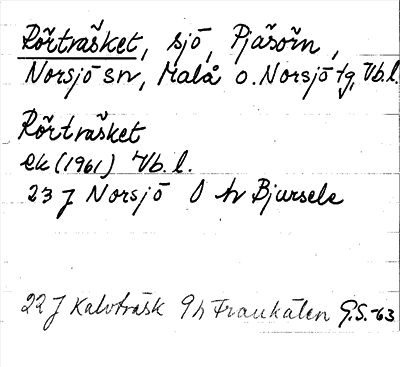 Rörträsket, sjö, Pjäsörn,
Norsjö sn, Malå o. Norsjö tg, Vb.l.
Rörträsket
ek (1961) Vb. l.
23 J Norsjö 0 hv Bjursele
22 J Kalvträsk 9 h Fraukälen G.S.-63